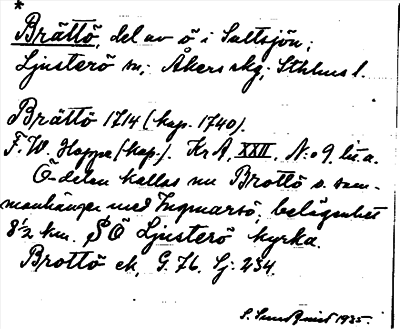 *
Brättö, del av ö i Saltsjön;
Ljusterö sn; Åkers skg; Sthlms l.
Brättö 1714 (kop. 1740).
F. W. Hoppe (kop.). KrA, XXII, N:o 9 lit. a.
Ödelen kallas nu Brottö o. sam-
manhänger med Ingmarsö, belägenhet
8 1/2 km. SÖ Ljusterö kyrka.
Brottö ek, G. 76. Sj: 234.
S. Sundqvist 1935.